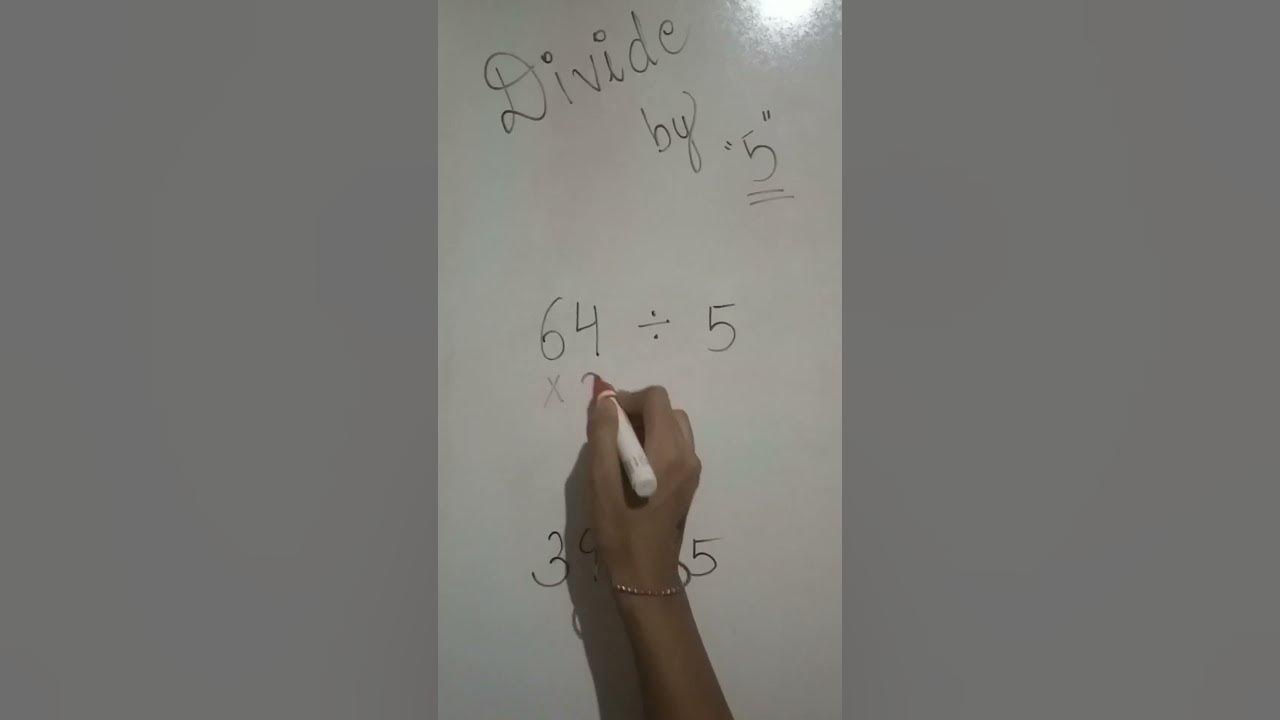 Divide
by "5"
64 ÷ 5
x
39 5